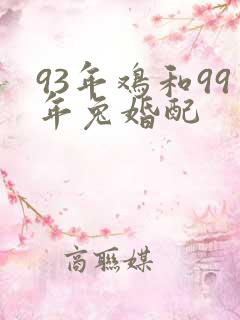 93年鸡和99
年兔婚配
商联媒